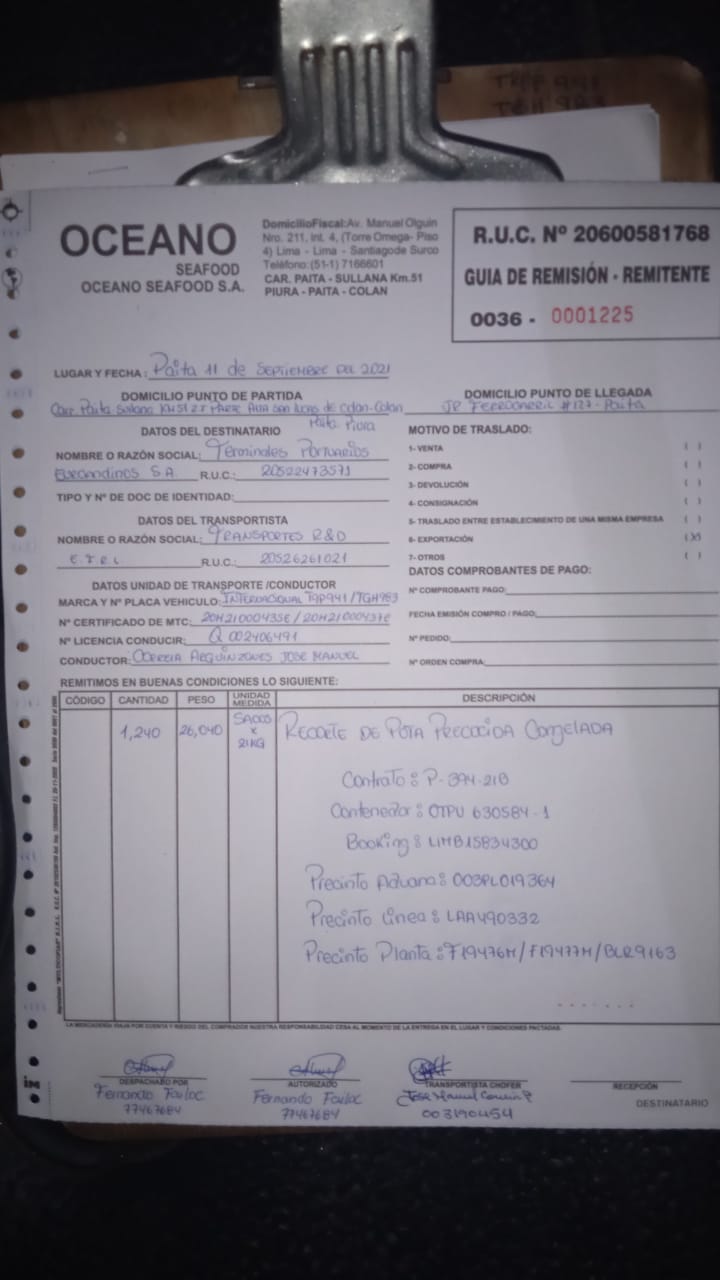 OCEANO
SEAFOOD
OCEANO SEAFOOD S.A.
DomicilioFiscal:Av. Manuel Olguin
Nro. 211, Int. 4, (Torre Omega- Piso
4) Lima - Lima - Santiagode Surco
Teléfono:(51-1) 7166601
CAR. PAITA - SULLANA Km.51
PIURA - PAITA - COLAN
R.U.C. Nº 20600581768
GUIA DE REMISIÓN - REMITENTE
0036 - 0001225
LUGAR Y FECHA : Paita 11 de SEPTIEMBRE DEL 2021
DOMICILIO PUNTO DE PARTIDA
Carr. Paita Sullana KM 51 ZT PARTE Alta San Lucas de Colan-Colan
Paita Piura
DOMICILIO PUNTO DE LLEGADA
JR FERROCARRIL #127-Paita
DATOS DEL DESTINATARIO
NOMBRE O RAZÓN SOCIAL: Terminales Portuarios
Euroandinos S.A. R.U.C.: 20522473571
TIPO Y Nº DE DOC DE IDENTIDAD:
DATOS DEL TRANSPORTISTA
NOMBRE O RAZÓN SOCIAL: TRANSPORTES R&D
E.I.R.L R.U.C.: 20526261021
DATOS UNIDAD DE TRANSPORTE /CONDUCTOR
MARCA Y Nº PLACA VEHICULO: INTERNACIONAL T9P941/TGH983
Nº CERTIFICADO DE MTC: 20H21000435E / 20H21000437E
Nº LICENCIA CONDUCIR: Q 002406491
CONDUCTOR: CORREIA JOSE MANUEL
MOTIVO DE TRASLADO:
1- VENTA ( )
2- COMPRA ( )
3- DEVOLUCIÓN ( )
4- CONSIGNACIÓN ( )
5- TRASLADO ENTRE ESTABLECIMIENTO DE UNA MISMA EMPRESA ( )
6- EXPORTACIÓN (X)
7- OTROS ( )
DATOS COMPROBANTES DE PAGO:
Nº COMPROBANTE PAGO:
FECHA EMISIÓN COMPRO / PAGO:
Nº PEDIDO:
Nº ORDEN COMPRA:
REMITIMOS EN BUENAS CONDICIONES LO SIGUIENTE:
CÓDIGO CANTIDAD PESO UNIDAD MEDIDA DESCRIPCIÓN
1,240 26,040 SACOS x 21KG RECORTE DE POTA PRECOCIDA Congelada
Contrato: P-394-21B
Contenedor: OTPU 630584-1
Booking: LIMB15834300
Precinto Aduana: 003PL019364
Precinto Linea: LAA490332
Precinto Planta: F19476M/F19477M/BLR9163
LA MERCADERÍA VIAJA POR CUENTA Y RIESGO DEL COMPRADOR NUESTRA RESPONSABILIDAD CESA AL MOMENTO DE LA ENTREGA EN EL LUGAR Y CONDICIONES PACTADAS.
DESPACHADO POR
Fernando
77467684
AUTORIZADO
Fernando
77467684
TRANSPORTISTA CHOFER
Jose Manuel
003190454
RECEPCIÓN
DESTINATARIO